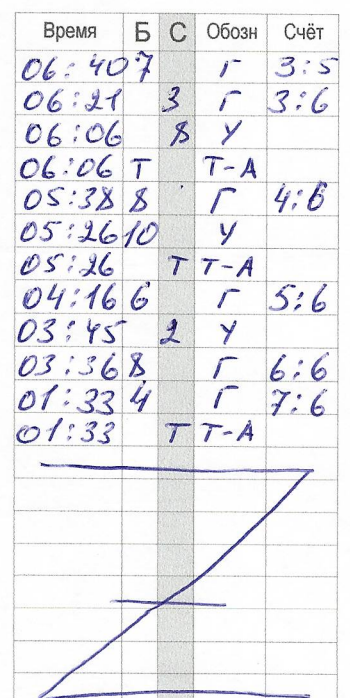 Время Б С Обозн Счёт
06:40 7 Г 3:5
06:21 3 Г 3:6
06:06 8 У
06:06 Т Т-А
05:38 8 Г 4:6
05:26 10 У
05:26 Т Т-А
04:16 6 Г 5:6
03:45 2 У
03:36 8 Г 6:6
01:33 4 Г 7:6
01:33 Т Т-А